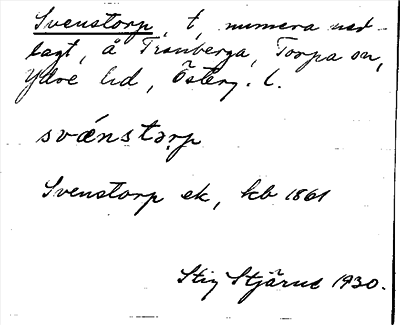 Svenstorp, t, numera ned-
lagt, å Tranberga, Torpa sn,
Ydre hd, Österg. l.
svǽnstərp
Svenstorp ek, kb 1861
Stig Stjärne 1930.